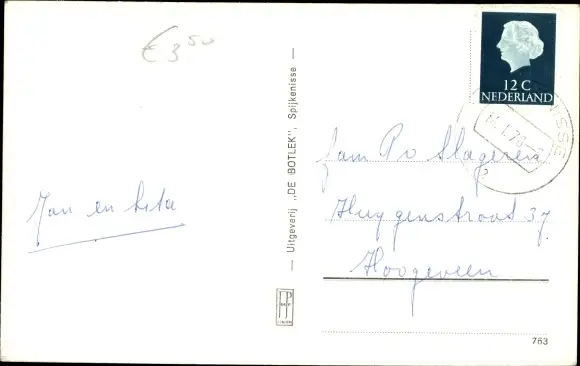 € 3 50
12 C
NEDERLAND
NISSE
Jan en Rita
Fam
Huygenstraat 37
Hoogeveen
Uitgeverij „DE BOTLEK”, Spijkenisse
763